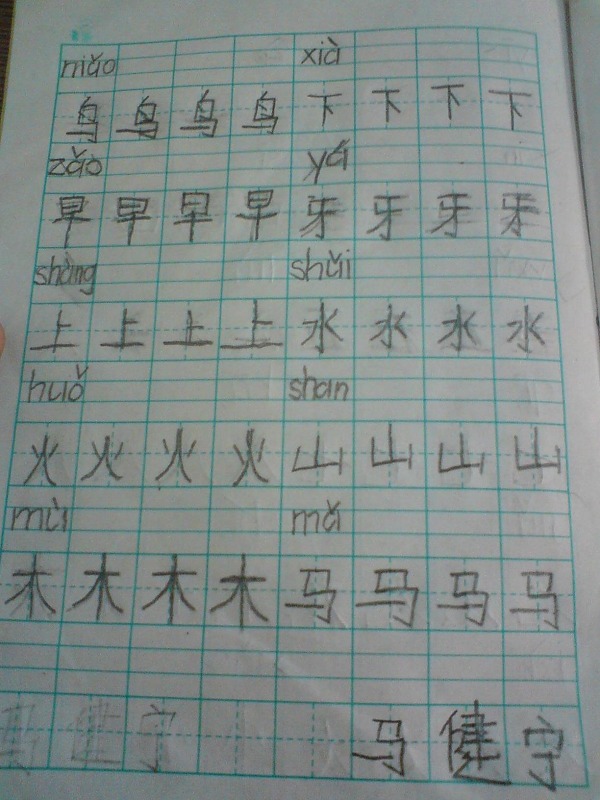 niǎo xià
鸟 鸟 鸟 鸟 下 下 下 下
zǎo yá
早 早 早 早 牙 牙 牙 牙
shàng shǔi
上 上 上 上 水 水 水 水
huǒ shan
火 火 火 火 山 山 山 山
mù mǎ
木 木 木 木 马 马 马 马
马 健 宁 马 健 宁